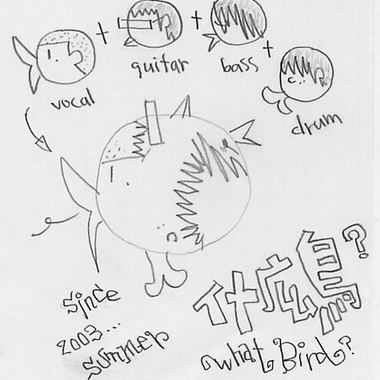 vocal
+
guitar
+
bass
+
drum
since
2003...
summer
什庅鳥?
what Bird?